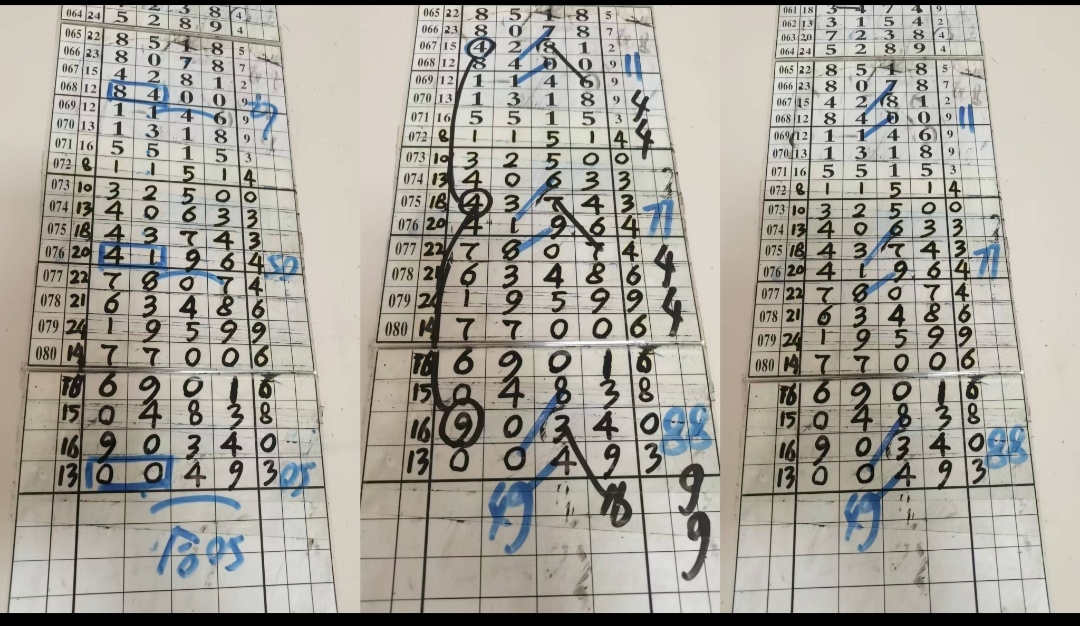 064 24 5 2 8 9 4
065 22 8 5 1 8 5
066 23 8 0 7 8 7
067 15 4 2 8 1 2
068 12 8 4 0 0 9
069 12 1 1 4 6 9
070 13 1 3 1 8 9
071 16 5 5 1 5 3
072 8 1 1 5 1 4
073 10 3 2 5 0 0
074 13 4 0 6 3 3
075 18 4 3 7 4 3
076 20 4 1 9 6 4 50
077 22 7 8 0 7 4
078 21 6 3 4 8 6
079 24 1 9 5 9 9
080 14 7 7 0 0 6
16 6 9 0 1 6
15 0 4 8 3 8
16 9 0 3 4 0
13 0 0 4 9 3 05
05
065 22 8 5 1 8 5
066 23 8 0 7 8 7
067 15 4 2 8 1 2
068 12 8 4 0 0 9 11
069 12 1 1 4 6 9
070 13 1 3 1 8 9 4
071 16 5 5 1 5 3 4
072 8 1 1 5 1 4
073 10 3 2 5 0 0
074 13 4 0 6 3 3
075 18 4 3 7 4 3 77
076 20 4 1 9 6 4
077 22 7 8 0 7 4 4
078 21 6 3 4 8 6
079 24 1 9 5 9 9 4
080 14 7 7 0 0 6
16 6 9 0 1 6
15 0 4 8 3 8
16 9 0 3 4 0 88
13 0 0 4 9 3
49 9
9
061 18 3 4 7 4 9
062 13 3 1 5 4 2
063 20 7 2 3 8 4
064 24 5 2 8 9 4
065 22 8 5 1 8 5
066 23 8 0 7 8 7
067 15 4 2 8 1 2
068 12 8 4 0 0 9 11
069 12 1 1 4 6 9
070 13 1 3 1 8 9
071 16 5 5 1 5 3
072 8 1 1 5 1 4
073 10 3 2 5 0 0
074 13 4 0 6 3 3
075 18 4 3 7 4 3 77
076 20 4 1 9 6 4
077 22 7 8 0 7 4
078 21 6 3 4 8 6
079 24 1 9 5 9 9
080 14 7 7 0 0 6
16 6 9 0 1 6
15 0 4 8 3 8
16 9 0 3 4 0 88
13 0 0 4 9 3
49